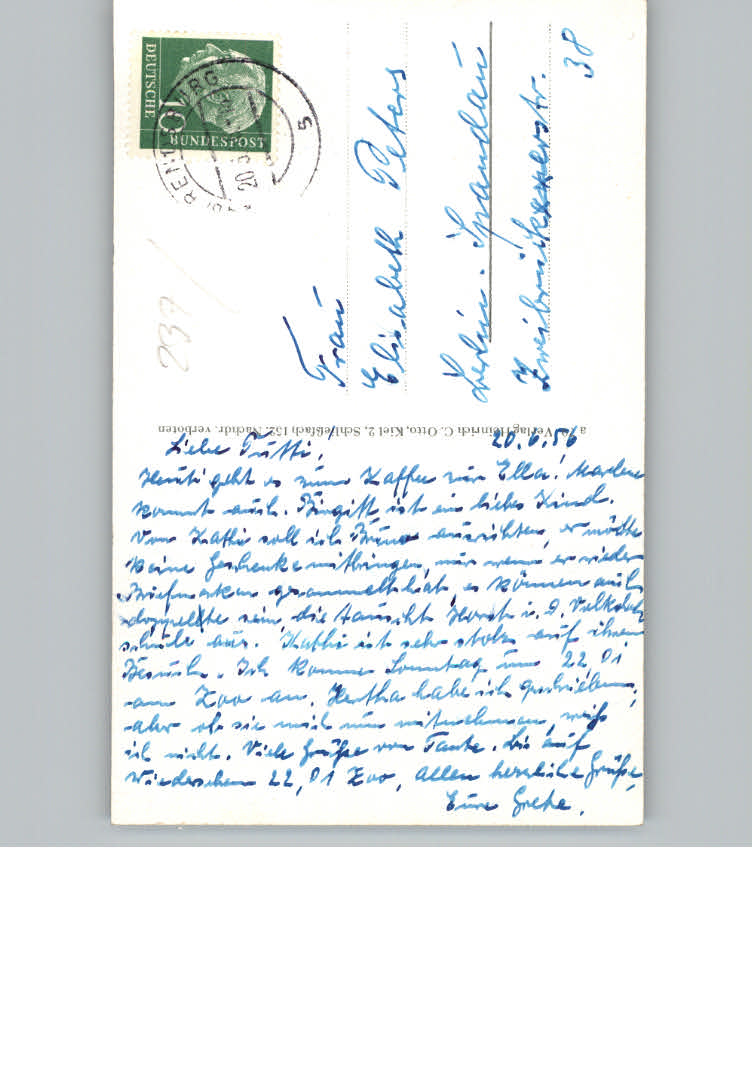 DEUTSCHE
10
BUNDESPOST
RENDSBURG
20.6
5
237
Frau
Elisabeth Peters
Berlin-Spandau
Zweibrückerstr.
38
Verlag Heinrich C. Otto, Kiel 2, Schließfach 152. Nachdr. verboten
20.6.56
Liebe Tutti,
Heute geht es zum Kaffee zur Ella! Marlene
kommt auch. Birgitt ist ein liebes Kind.
Von Kathi soll ich Bruno ausrichten, er möchte
keine Geschenke mitbringen, nur wenn er wieder
Briefmarken gesammelt hat, es können auch
doppelte sein, die tauscht Horst i. d. Volksho
schule aus. Kathi ist sehr stolz auf ihren
Besuch. Ich komme Sonntag um 22,01
am Zoo an. Hertha habe ich geschrieben,
aber ob sie mich nun mitnehmen, weiß
ich nicht. Viele Grüße von Tante. Bis auf
Wiedersehen 22,01 Zoo, allen herzliche Grüße,
Eure Grete.